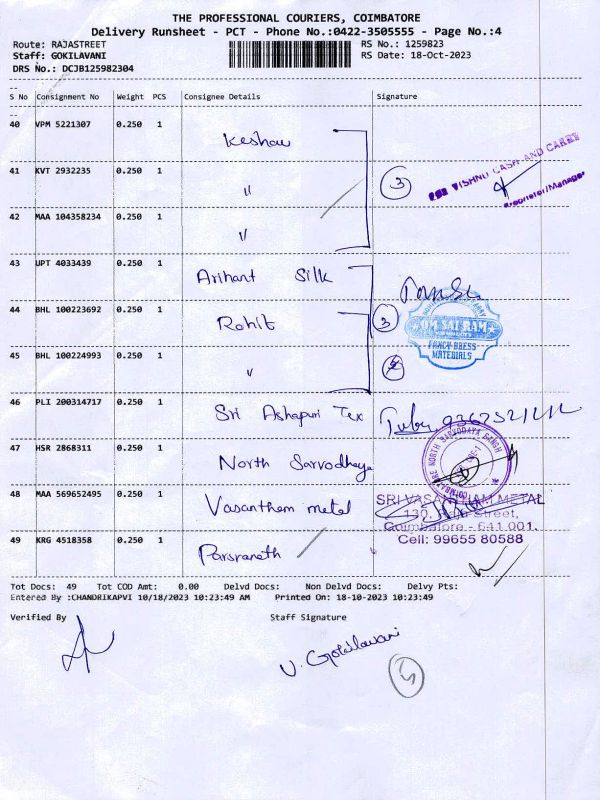 THE PROFESSIONAL COURIERS, COIMBATORE
Delivery Runsheet - PCT - Phone No.:0422-3505555 - Page No.:4
Route: RAJASTREET RS No.: 1259823
Staff: GOKILAVANI RS Date: 18-Oct-2023
DRS No.: DCJB125982304
S No Consignment No Weight PCS Consignee Details Signature
40 VPM 5221307 0.250 1 Keshav
VISHNU CASH AND CARRY
41 KVT 2932235 0.250 1 〃 3
Proprietor/Manager
42 MAA 104358234 0.250 1 〃
43 UPT 4033439 0.250 1 Arihant Silk
44 BHL 100223692 0.250 1 Rohit 3
OM SAI RAM
FANCY DRESS
MATERIALS
45 BHL 100224993 0.250 1 〃
46 PLI 200314717 0.250 1 Sri Ashapuri Tex
47 HSR 2868311 0.250 1 North Sarvodhaya
NORTH SARVODAYA SANGH
48 MAA 569652495 0.250 1 Vasantham metal
SRI VASANTHAM METAL
Street,
Coimbatore - 641 001.
Cell: 99655 80588
49 KRG 4518358 0.250 1 Parsranath
Tot Docs: 49 Tot COD Amt: 0.00 Delvd Docs: Non Delvd Docs: Delvy Pts:
Entered By :CHANDRIKAPVI 10/18/2023 10:23:49 AM Printed On: 18-10-2023 10:23:49
Verified By Staff Signature
V. Gokilavani